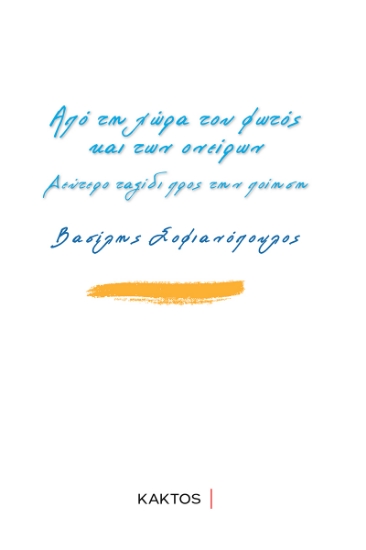 Από τη χώρα του φωτός
και των ονείρων
Δεύτερο ταξίδι προς την ποίηση
Βασίλης Σοφιανόπουλος
ΚΑΚΤΟS